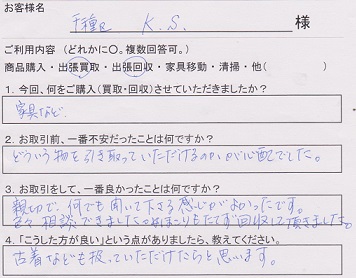 お客様名
千種区 K.S. 様
ご利用内容(どれかに○。複数回答可。)
商品購入・出張買取・出張回収・家具移動・清掃・他( )
1. 今回、何をご購入(買取・回収)させていただきましたか?
家具など.
2. お取引前、一番不安だったことは何ですか?
どういう物を引き取っていただけるのかが心配でした。
3. お取引をして、一番良かったことは何ですか?
親切で、何でも聞いて下さる感じがよかったです。
色々相談できましたし、ほこりもたてず回収して頂きました。
4. 「こうした方が良い」という点がありましたら、教えてください。
古着なども扱っていただけたらと思います。